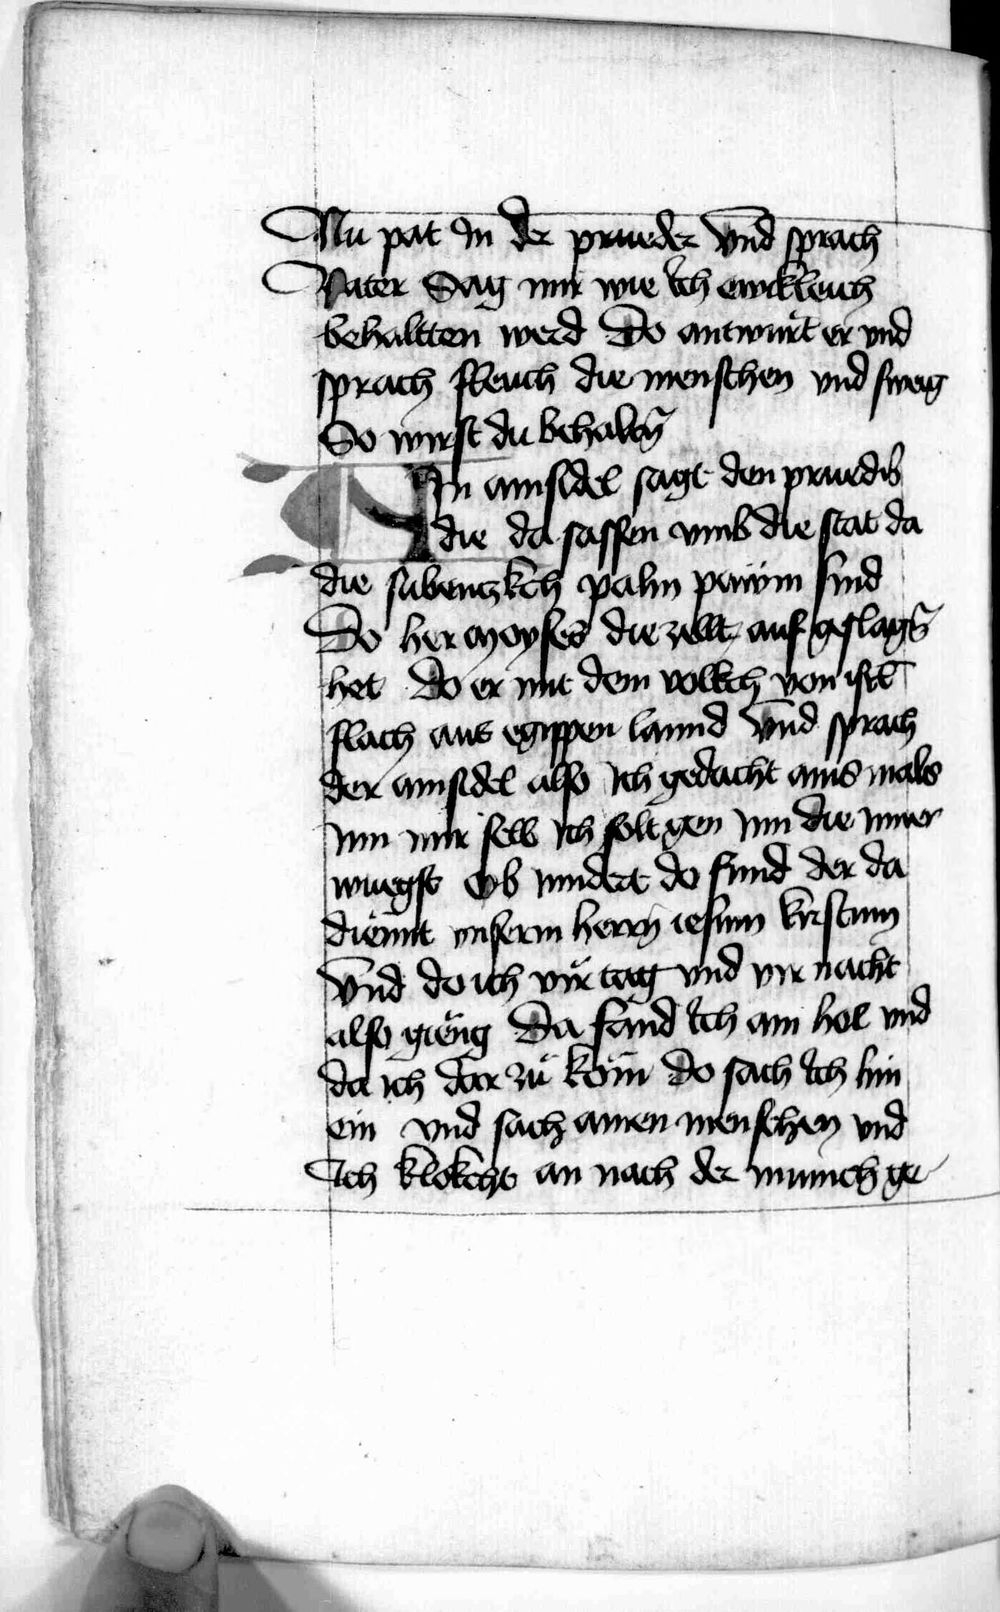 Nu pat In der prueder vnd sprach
Vater Sag mir wie Ich ewikleich
behaltten werd Do antwurt er vnd
sprach fleuch die menschen vnd sweig
So wirst du behaltn̄
Ain ainsidel sagt den pruedñ
die da sassen vmb die stat da
die sibentzkch palm pawm sind
Do her moyses die zellt auf geslagn̄
het Do er mit dem volkch von isrl̄
flach aus egippen lannd vnd sprach
der ainsidel also Ich gedacht ains mals
Inn mir selb Ich solt gen Inn die inner
wuegst Ob nindert do sind der da
diennt vnserm herrn iesum kristum
vnd do ich vir tag vnd vir nacht
also gieng Da fand Ich ain hol vnd
da ich dar zu kom̄ do sach Ich hin
ein vnd sach ainen menschen vnd
Ich klokcht an nach der munich ge